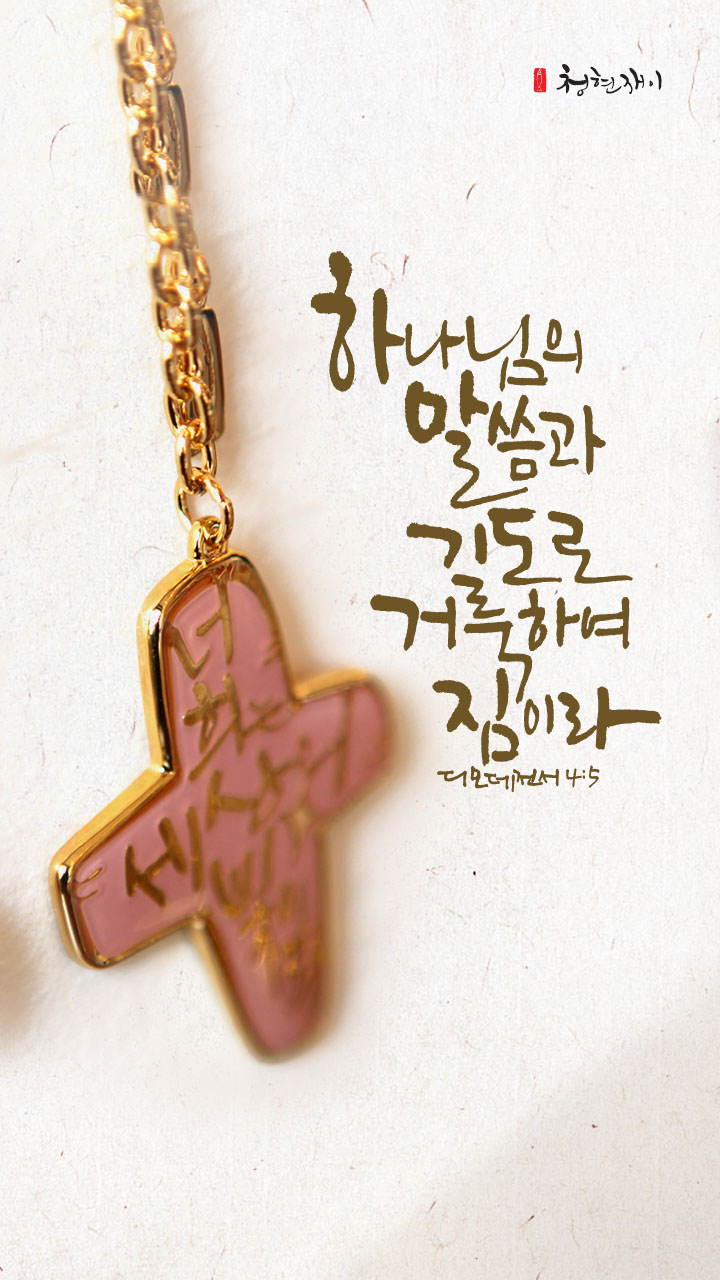 청현재이
하나님의
말씀과
기도로
거룩하여
짐이라
디모데전서 4:5
너
희는
세상의
빛